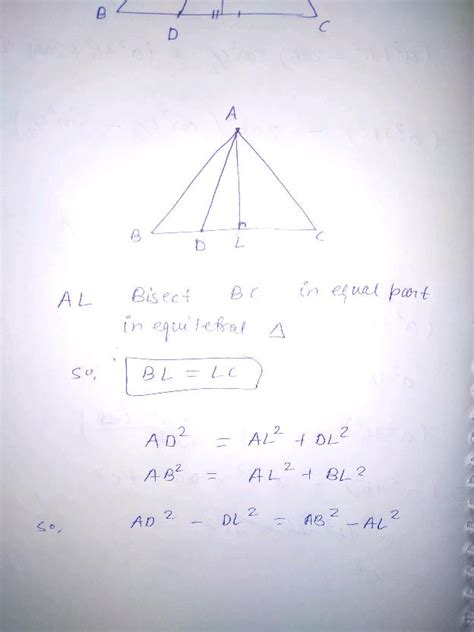 B D C
A
B D L C
AL Bisect BC in equal part
in equiletral Δ
so, BL = LC
AD² = AL² + DL²
AB² = AL² + BL²
so, AD² - DL² = AB² - AL²